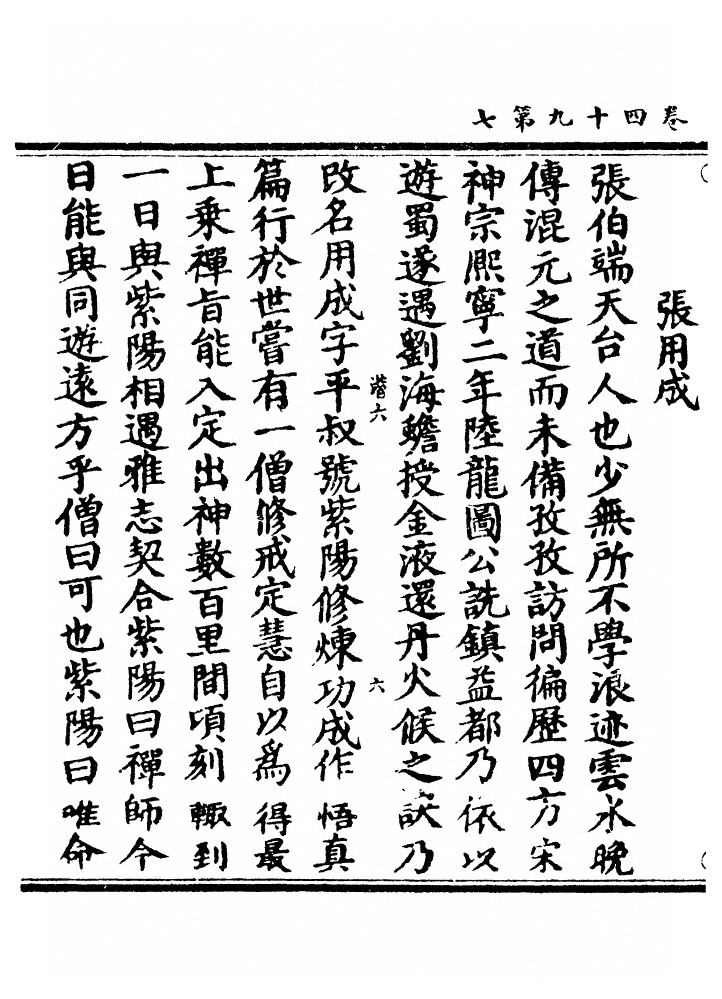 卷四十九第七
張用成
張伯端天台人也少無所不學浪迹雲水晚
傳混元之道而未備孜孜訪問徧歷四方宋
神宗熈寧二年陸龍圖公詵鎮益都乃依以
遊蜀遂遇劉海蟾授金液還丹火候之訣乃
㬱六
六
改名用成字平叔號紫陽修煉功成作悟真
篇行於世嘗有一僧修戒定慧自以爲得最
上乗禪旨能入定出神數百里間頃刻輙到
一日與紫陽相遇雅志契合紫陽曰禪師今
日能與同遊遠方乎僧曰可也紫陽曰唯命